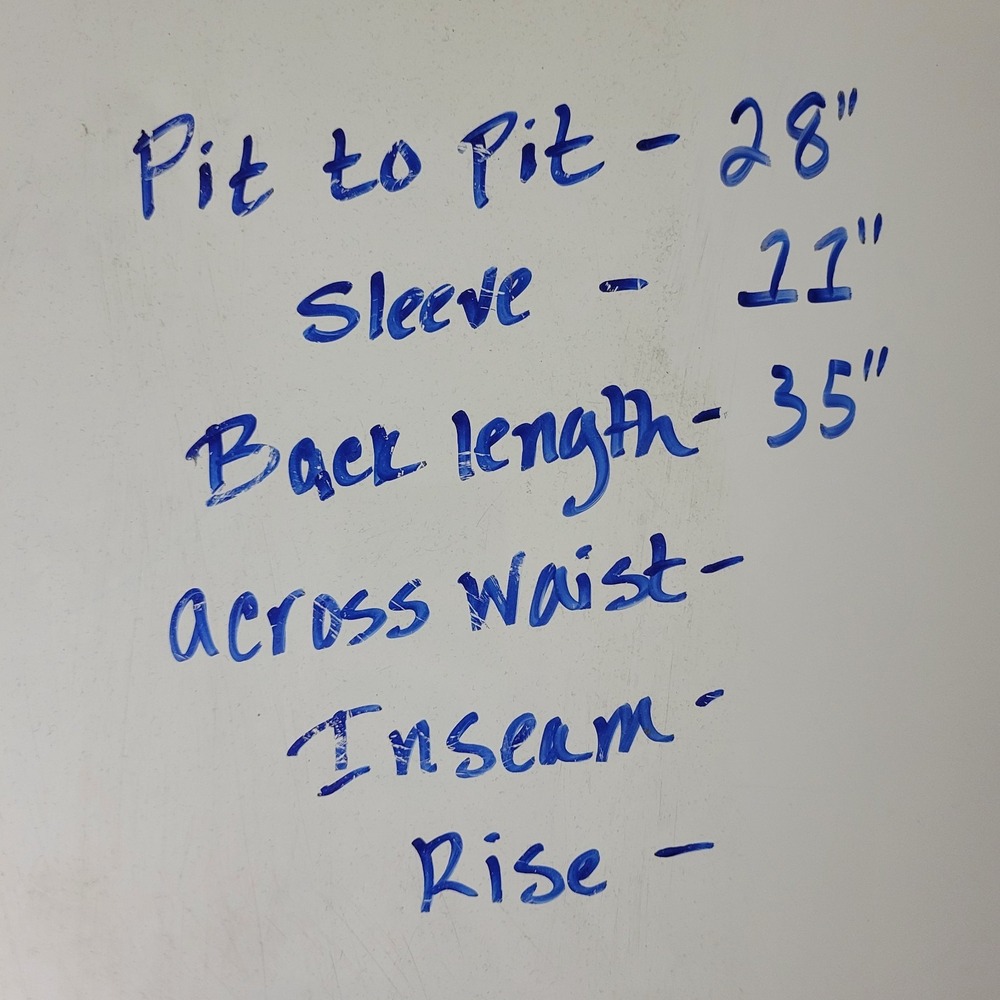 Pit to Pit - 28"
Sleeve - 11"
Back length - 35"
across waist -
Inseam -
Rise -